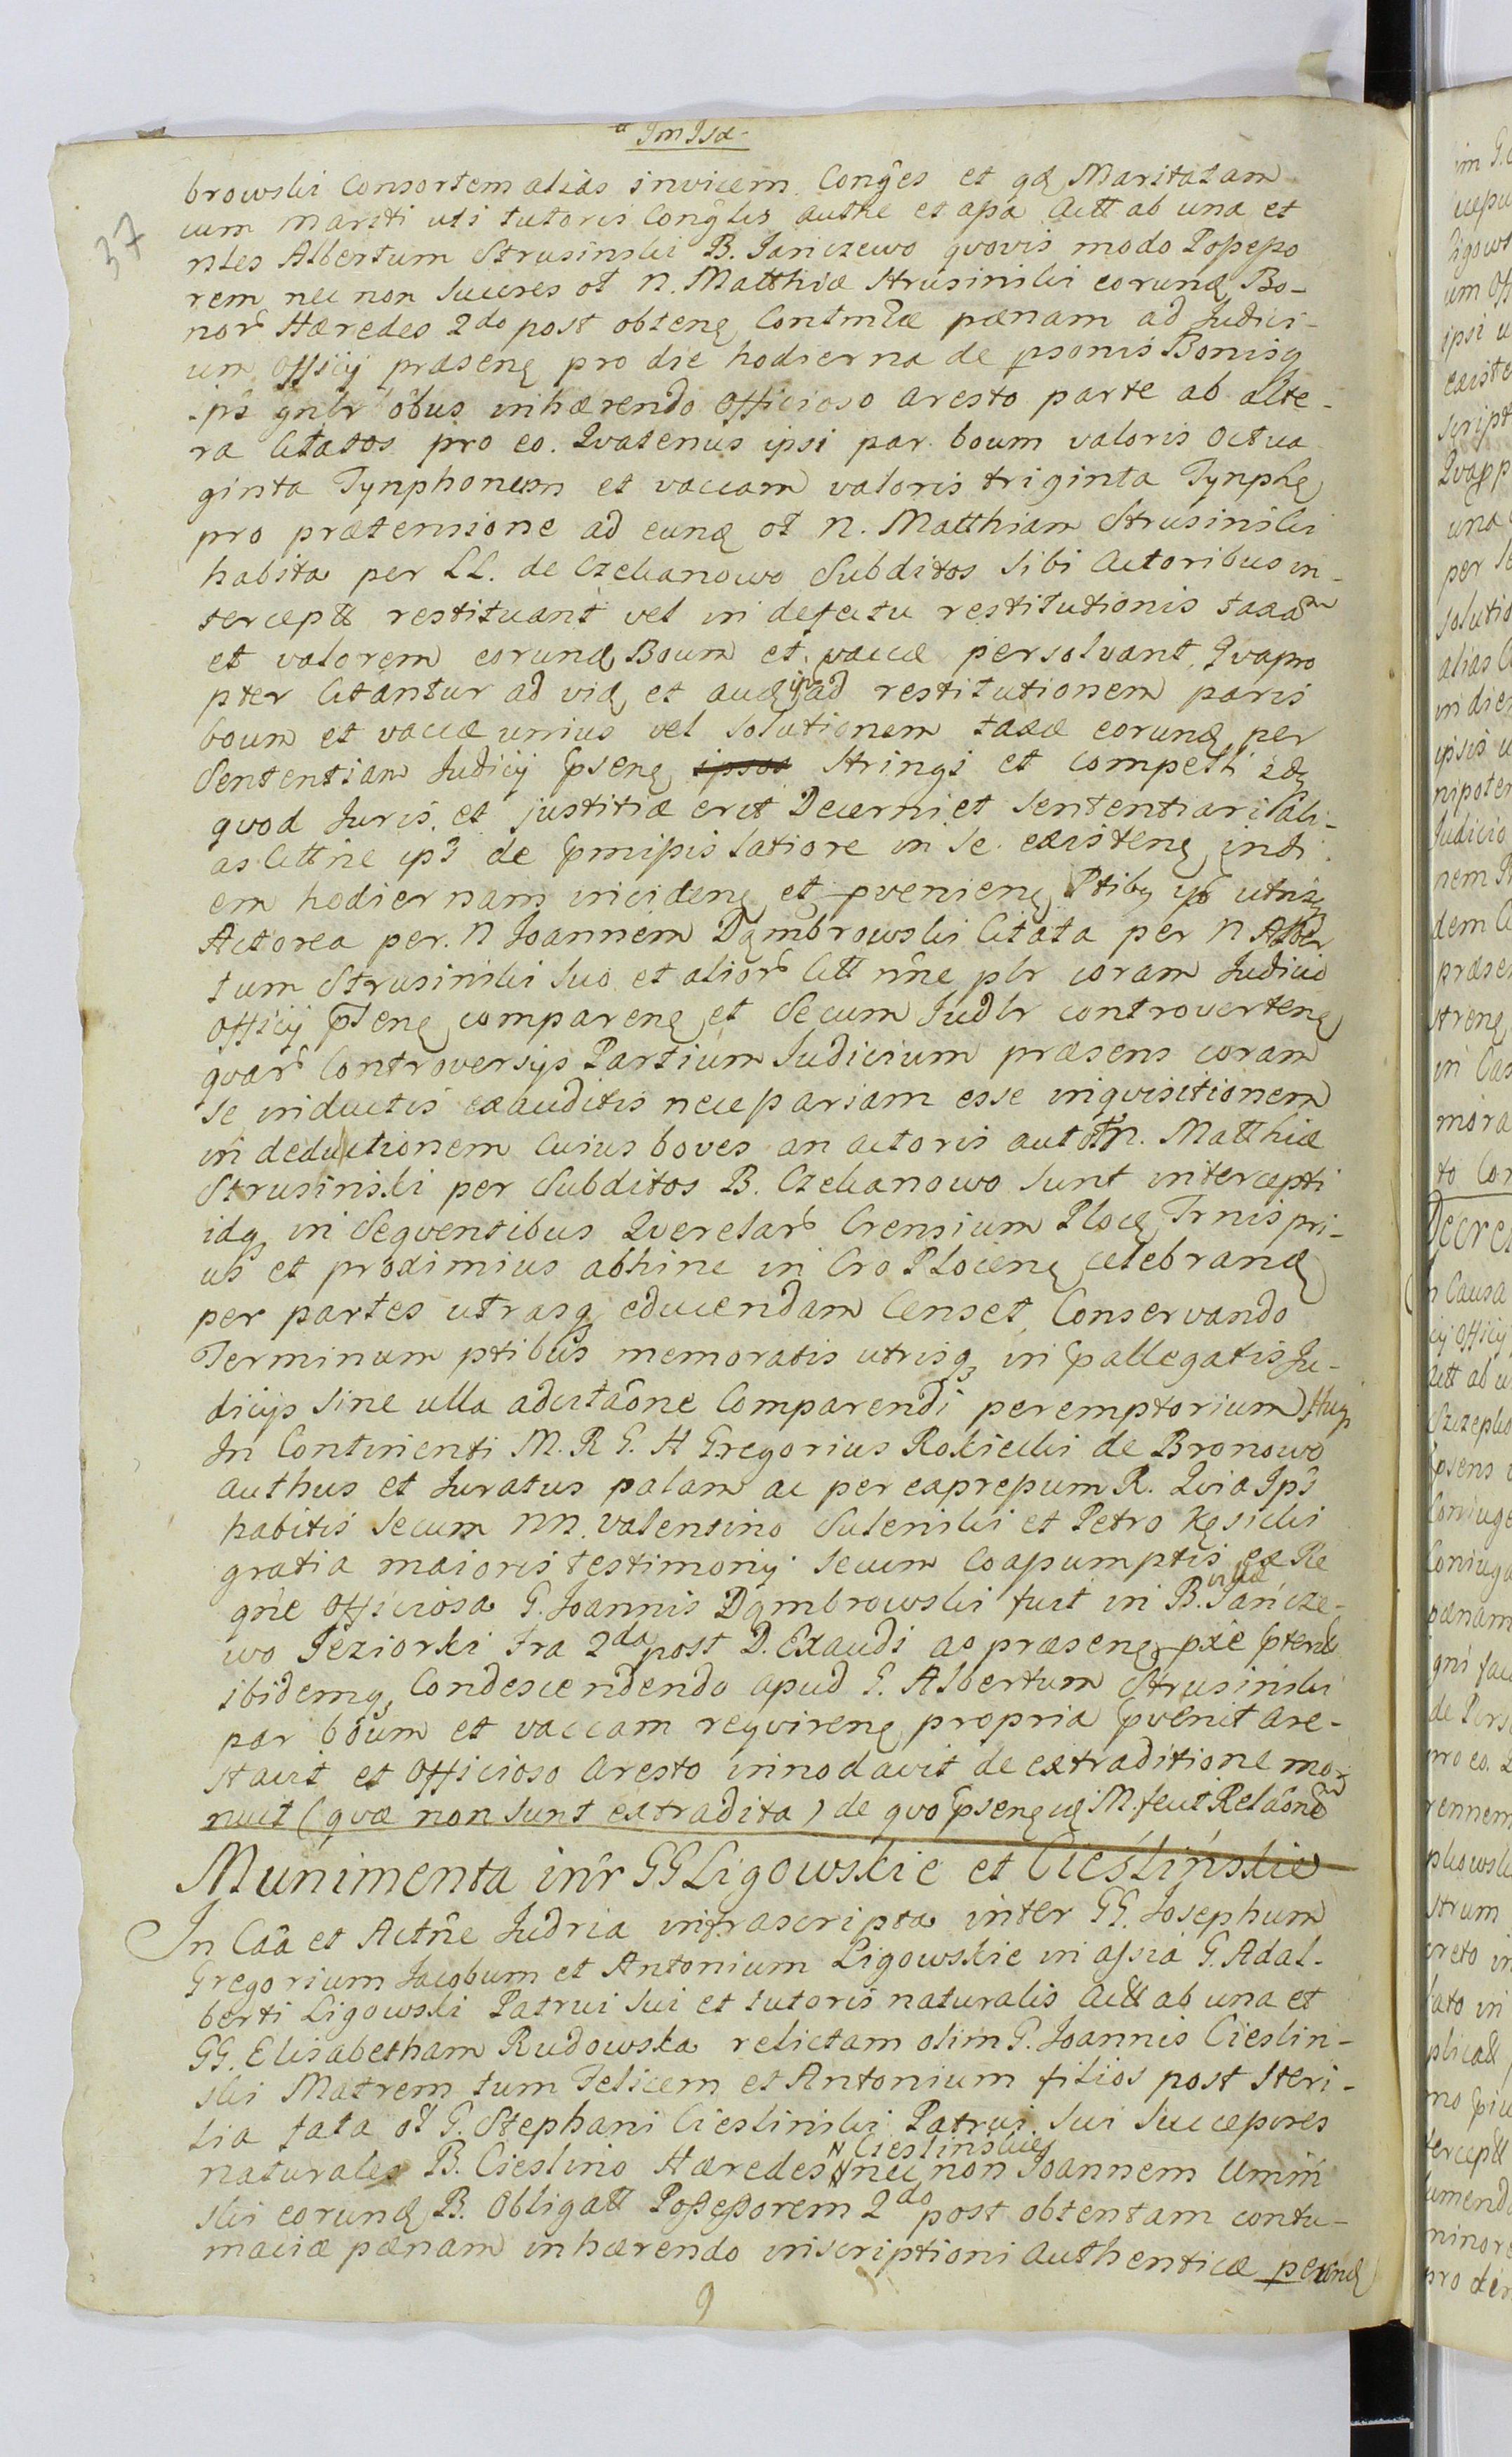 37
browski Consortem alias invicem Conges et qd Maritatam
cum Mariti uti tutoris Conglis authe et apa Actt ab una et
nles Albertum Strusinski B. Janczewo quovis modo Possesso
rem nec non Succres ol N. Matthiæ Strusinski eorund Bo-
nor Hæredes 2do post obteng Contmciæ pænam ad Judici-
um Officij præseng pro die hodierna de psonis Bonisq
ips gnlr obus inhærendo Officioso aresto parte ab alte-
ra Citatos pro eo. Qvatenus ipsi par boum valoris octua
ginta Tynphonum et vaccam valoris triginta Tynphg
pro prætensione ad eund ol N. Matthiam Strusinski
habita per LL. de Czekanowo Subditos Sibi Actoribus in-
tercept restituant vel in defectu restitutionis taxam
et valorem eorund Boum et vaccæ persolvant, Qvapro
pter Citantur ad vid et aud ad restitutionem paris
boum et vaccæ unius vel solutionem taxæ eorund per
Sententiam Judicij pseng ipsos stringi et compelli idq
quod Juris et justitiæ erit Decerni et Sententiari Sali-
as Cittne ips de pmissis latiore in se existeng in di
em hodiernam incideng et pvenieng Ptibg ips utrisq
Actorea per N Joannem Dąmbrowski Citata per N Alber
tum Strusinski suo et alior Citt nne plr coram Judicio
Officij pseng compareng et Secum Judlr controverteng
quar Controversijs Partium Judicium præsens coram
se inductis exauditis necessariam esse inqvisitionem
in deductionem Cuius boves an actoris aut ol N. Matthiæ
Strusinski per Subditos B. Czekanowo Sunt intercepti
idq in Seqventibus Qverelar Crensium Plocg Trnis pri-
us et proximius abhinc in Cro Ploceng celebrand
per partes utrasq educendam Censet, Conservando
Terminum ptibus memoratis utrisq in pallegatis Ju-
dicijs Sine ulla adcitaone Comparendi peremptorium Hujq
In Continenti M. R G. H Gregorius Rokicki de Bronowo
authus et Juratus palam ac per expressum R. Qvia Ips
habitis Secum NN. Valentino Sulenski et Petro Kęsicki
gratia maioris testimonij Secum Coassumptis ex Re
qne Officiosa G. Joannis Dąmbrowski fuit in B. villa Jańcze-
wo Jeziorki Fra 2da post D. Exaudi ao præseng pxie pterit
ibidemq Condescendendo apud G. Albertum Strusinski
par boum et vaccam reqvireng propria pvenit are-
stavit et Officioso aresto innodavit de extraditione mo-
nuit (quæ non sunt extradita) de quo pseng M. fecit Relaonem
Munimenta intr GG Ligowskie et Cieślińskie
In Caa et Actne Judria infrascripta inter GG. Josephum
Gregorium Jacobum et Antonium Ligowskie in assia G. Adal-
berti Ligowski Patrui sui et tutoris naturalis Actt ab una et
GG. Elisabetham Rudowska relictam olim G. Joannis Cieslin-
ski Matrem tum Felicem et Antonium filios post steri-
lia fata ol G. Stephani Cieslinski Patrui sui Successores
naturales B. Cieslino Hæredes N Cieslinskie nec non Joannem Umin
ski eorund B. Obligatt Possessorem 2do post obtentam contu-
maciæ pænam inhærendo inscriptioni Authenticæ
9